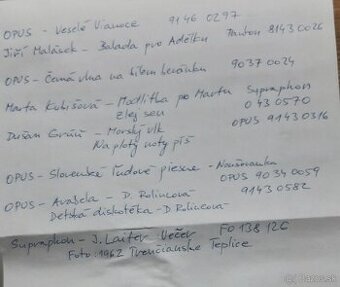 OPUS - Veselé Vianoce 9146 0297
Jiří Malásek - Balada pro Adélku Panton 8143 0026
OPUS - Černá vlna na bílem beránku 9037 0024
Marta Kubišová - Modlitba pro Martu Supraphon
Zlej sen 0 43 0570
Dušan Grúň - Morský vlk OPUS 9143 0316
Na ploty noty píš
OPUS - Slovenské ľudové piesne -
OPUS - Avašela - D. Rolincová OPUS 9034 0059
Detská diskotéka - D. Rolincová 9143 0582
Supraphon - J. Laifer Večer FO 138 126
Foto: 1962 Trenčianske Teplice
Bazos.sk